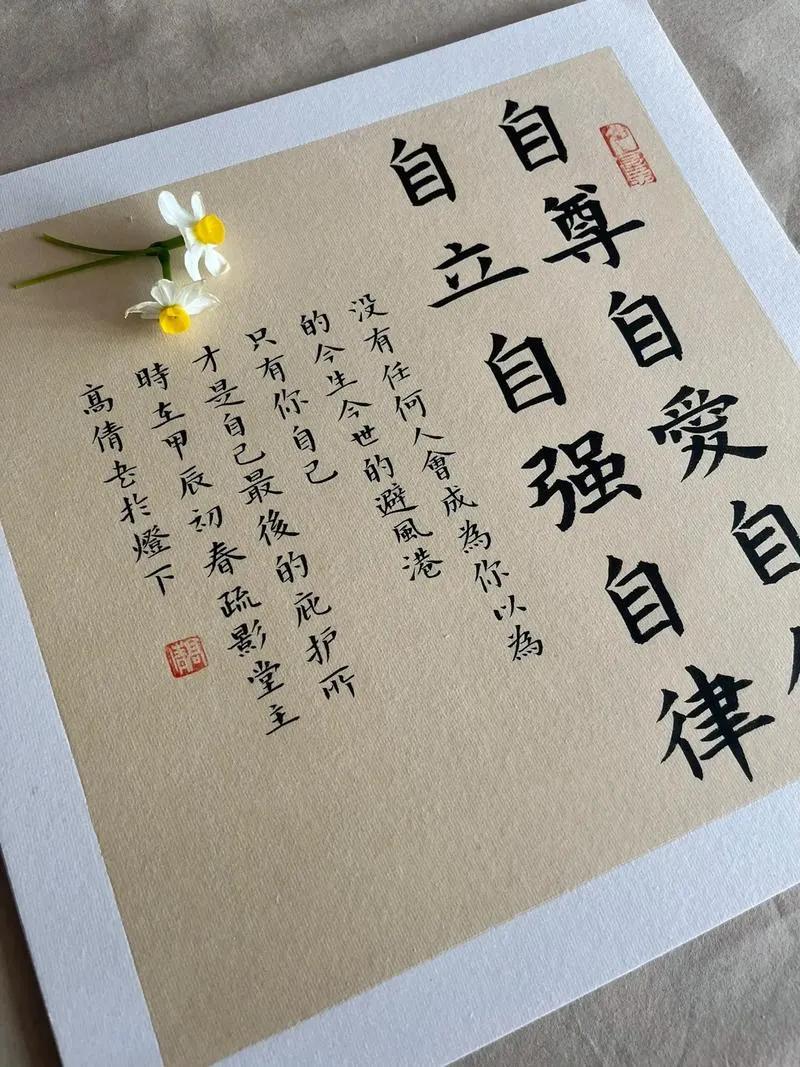 自尊自愛自
自立自强自律
没有任何人會成為你以為
的今生今世的避風港
只有你自己
才是自己最後的庇护所
時在甲辰初春疏影堂主
高倩书於燈下
高倩